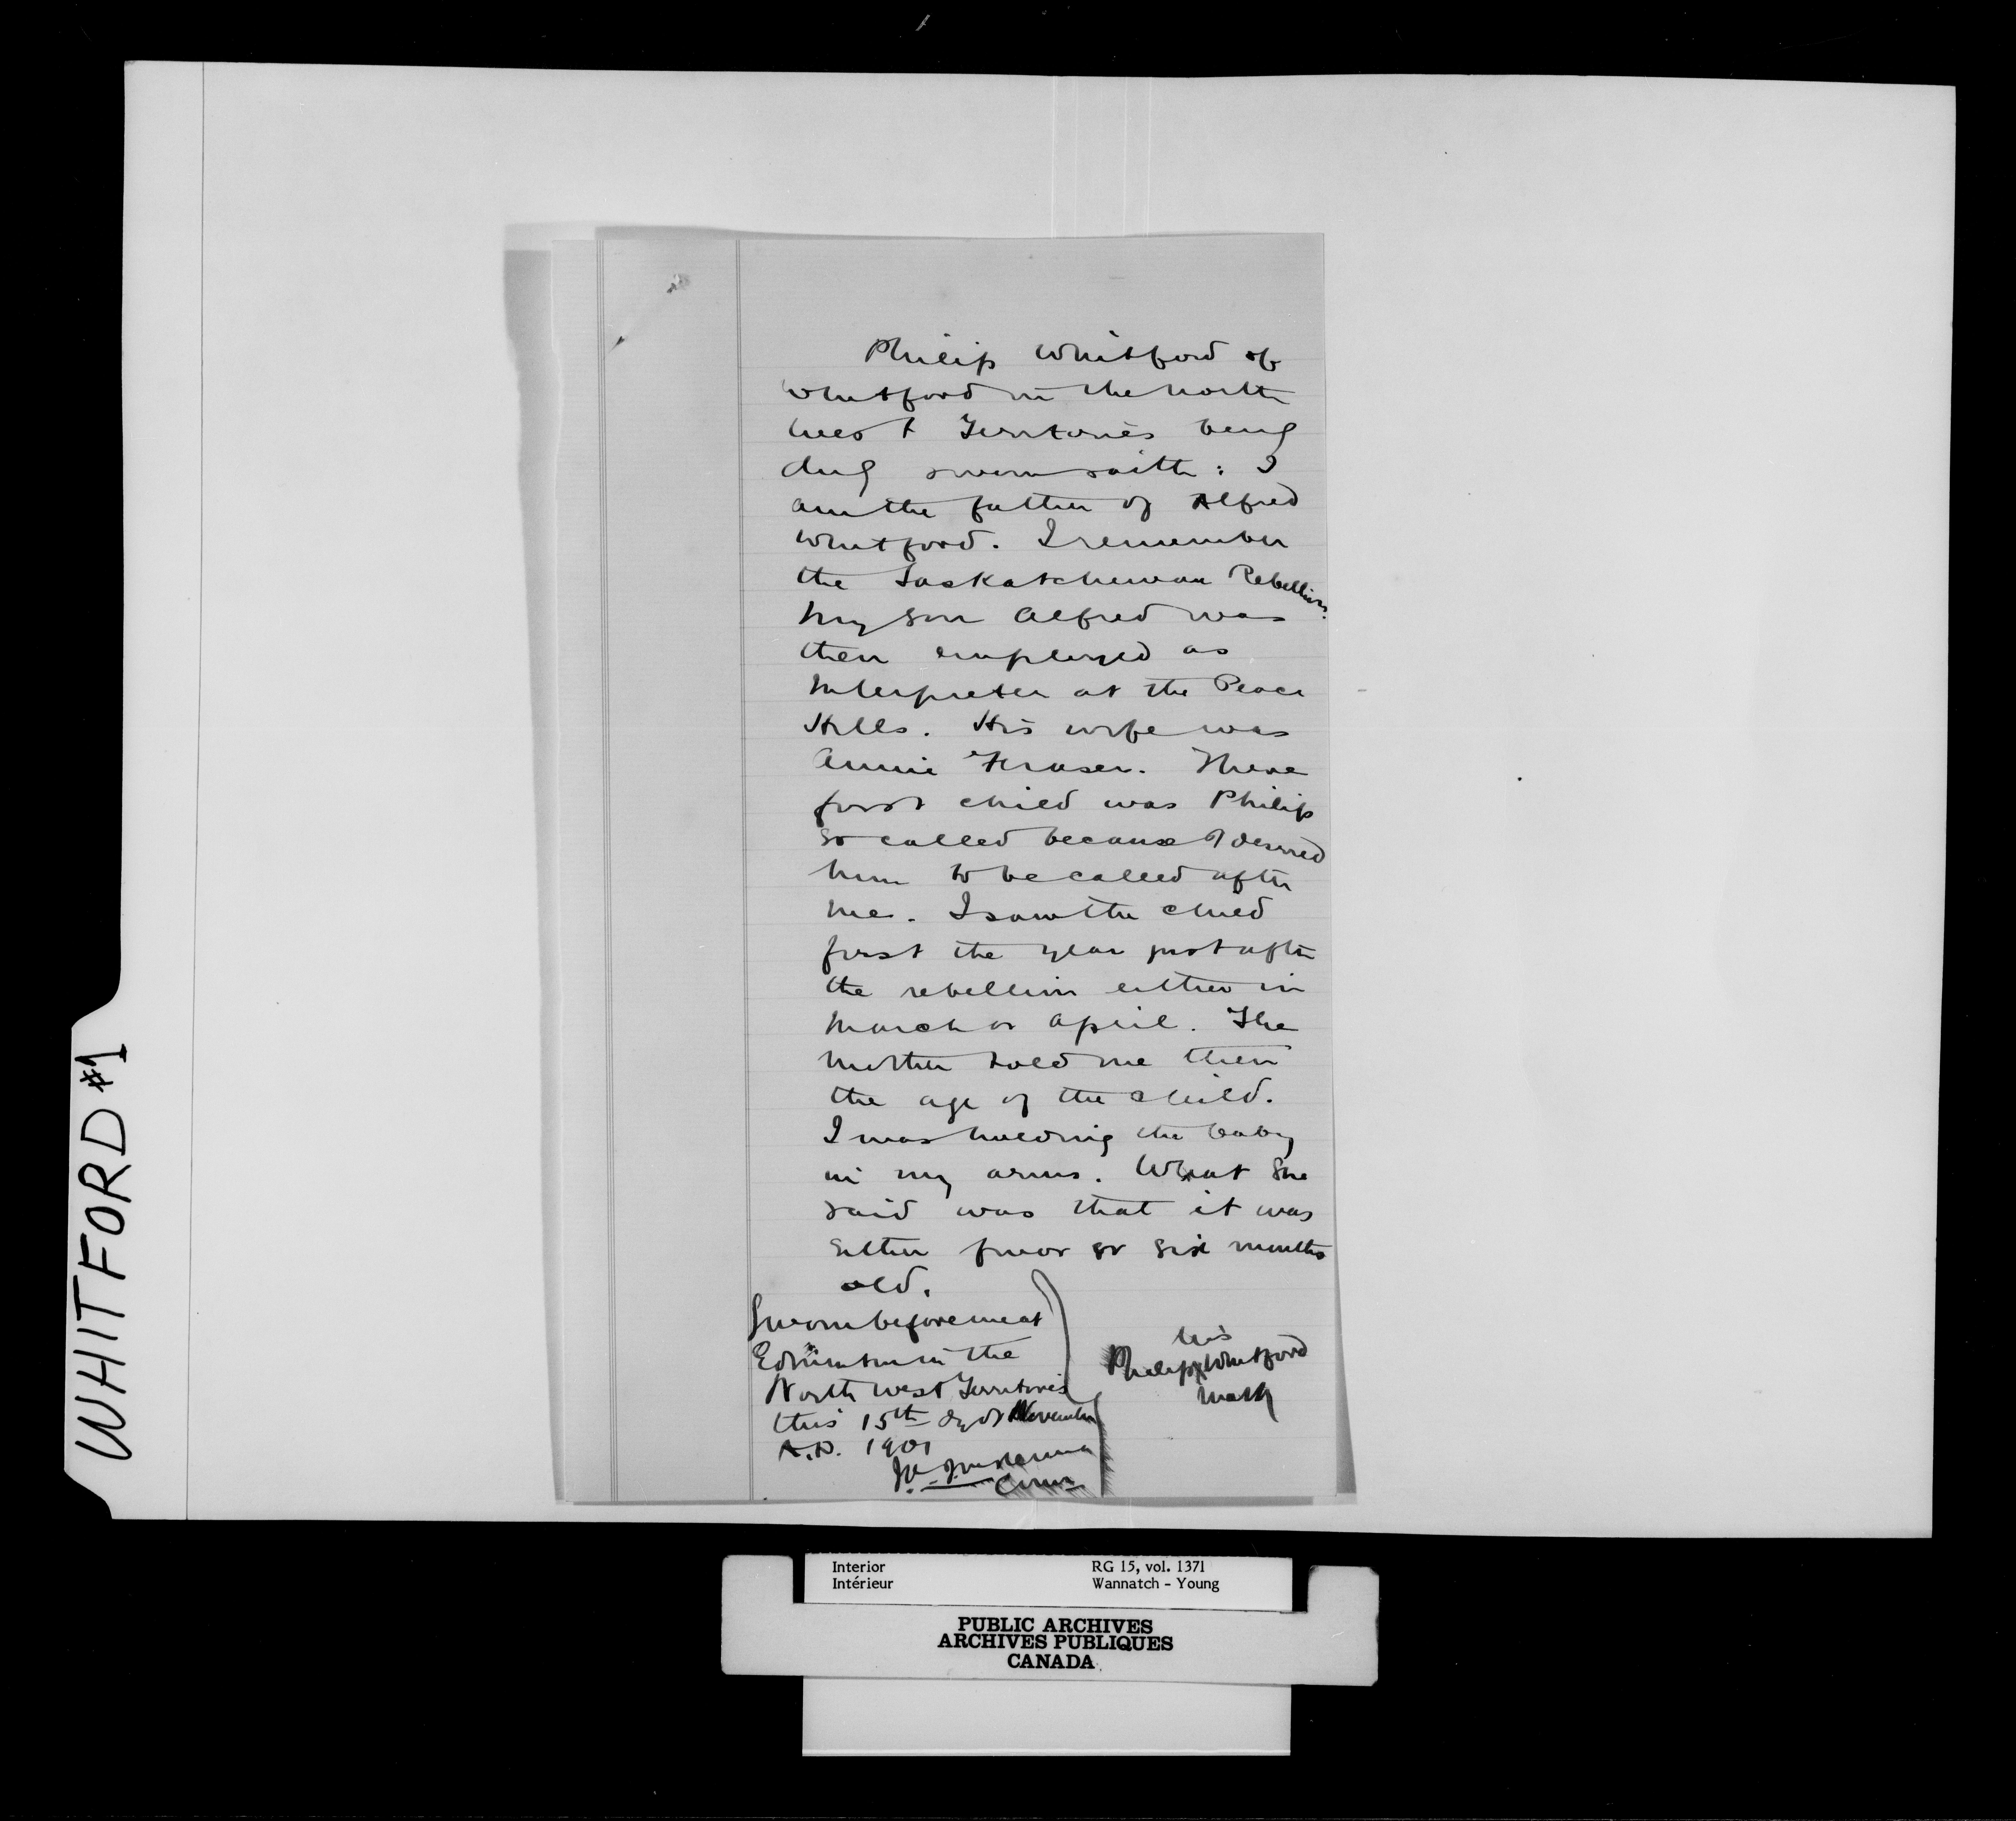 WHITFORD #1
Philip Whitford of
Whitford in the North
West Territories being
duly sworn saith: I
am the father of Alfred
Whitford. I remember
the Saskatchewan Rebellion.
My son Alfred was
then employed as
Interpreter at the Peace
Hills. His wife was
Annie Fraser. There
first child was Philip
so called because I desired
him to be called after
me. I saw the child
first the year just after
the rebellion either in
March or April. The
mother told me then
the age of the child.
I was holding the baby
in my arms. What she
said was that it was
either four or six months
old.
Sworn before me at
Edmonton in the
North West Territories
this 15th day of November
A.D. 1901
Comr
his
Philip X Whitford
mark
Interior
Intérieur
RG 15, vol. 1371
Wannatch - Young
PUBLIC ARCHIVES
ARCHIVES PUBLIQUES
CANADA